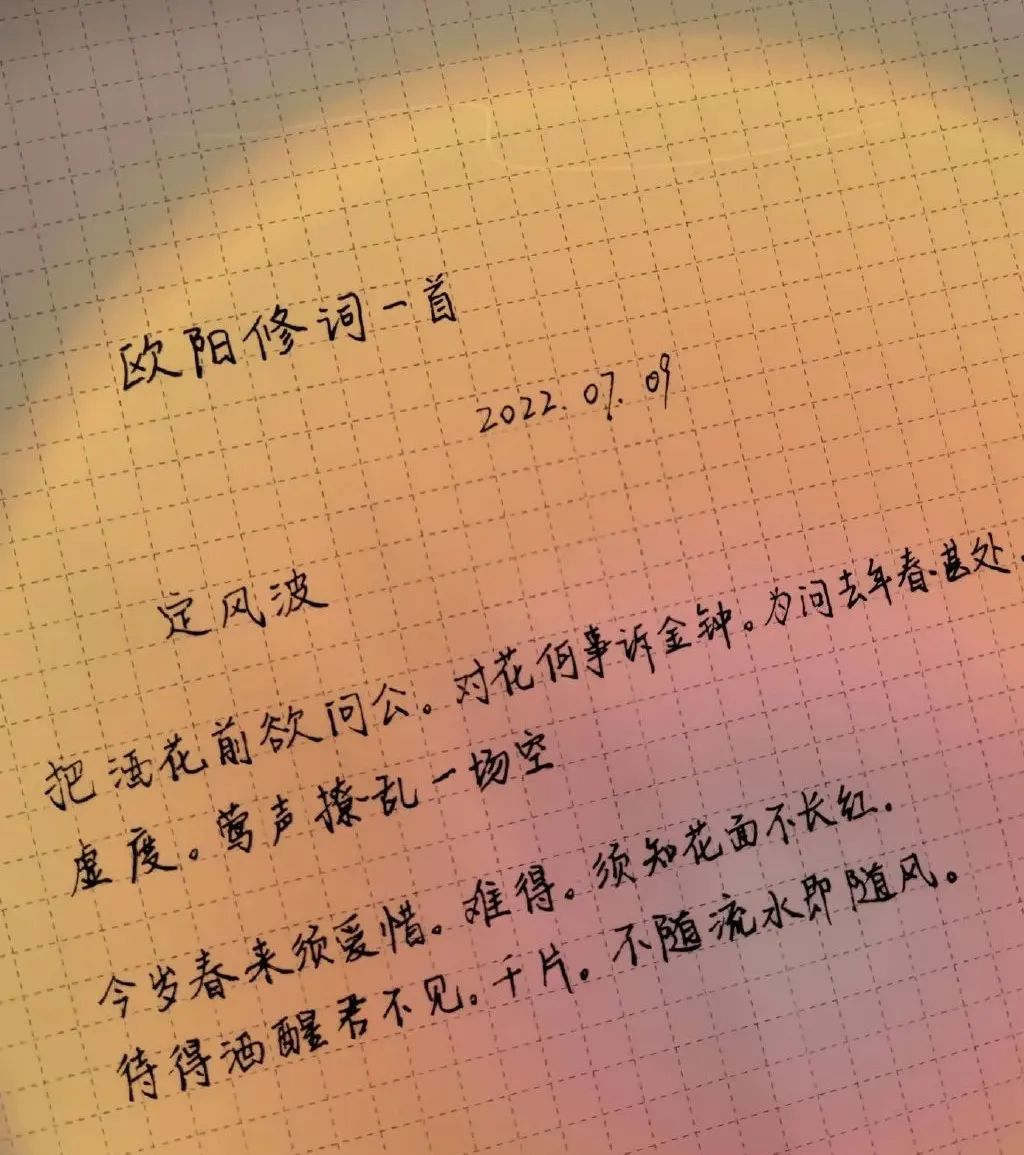 欧阳修词一首
2022.07.09
定风波
把酒花前欲问公。对花何事诉金钟。为问去年春甚处.
虚度。莺声撩乱一场空
今岁春来须爱惜。难得。须知花面不长红.
待得酒醒君不见。千片。不随流水即随风。